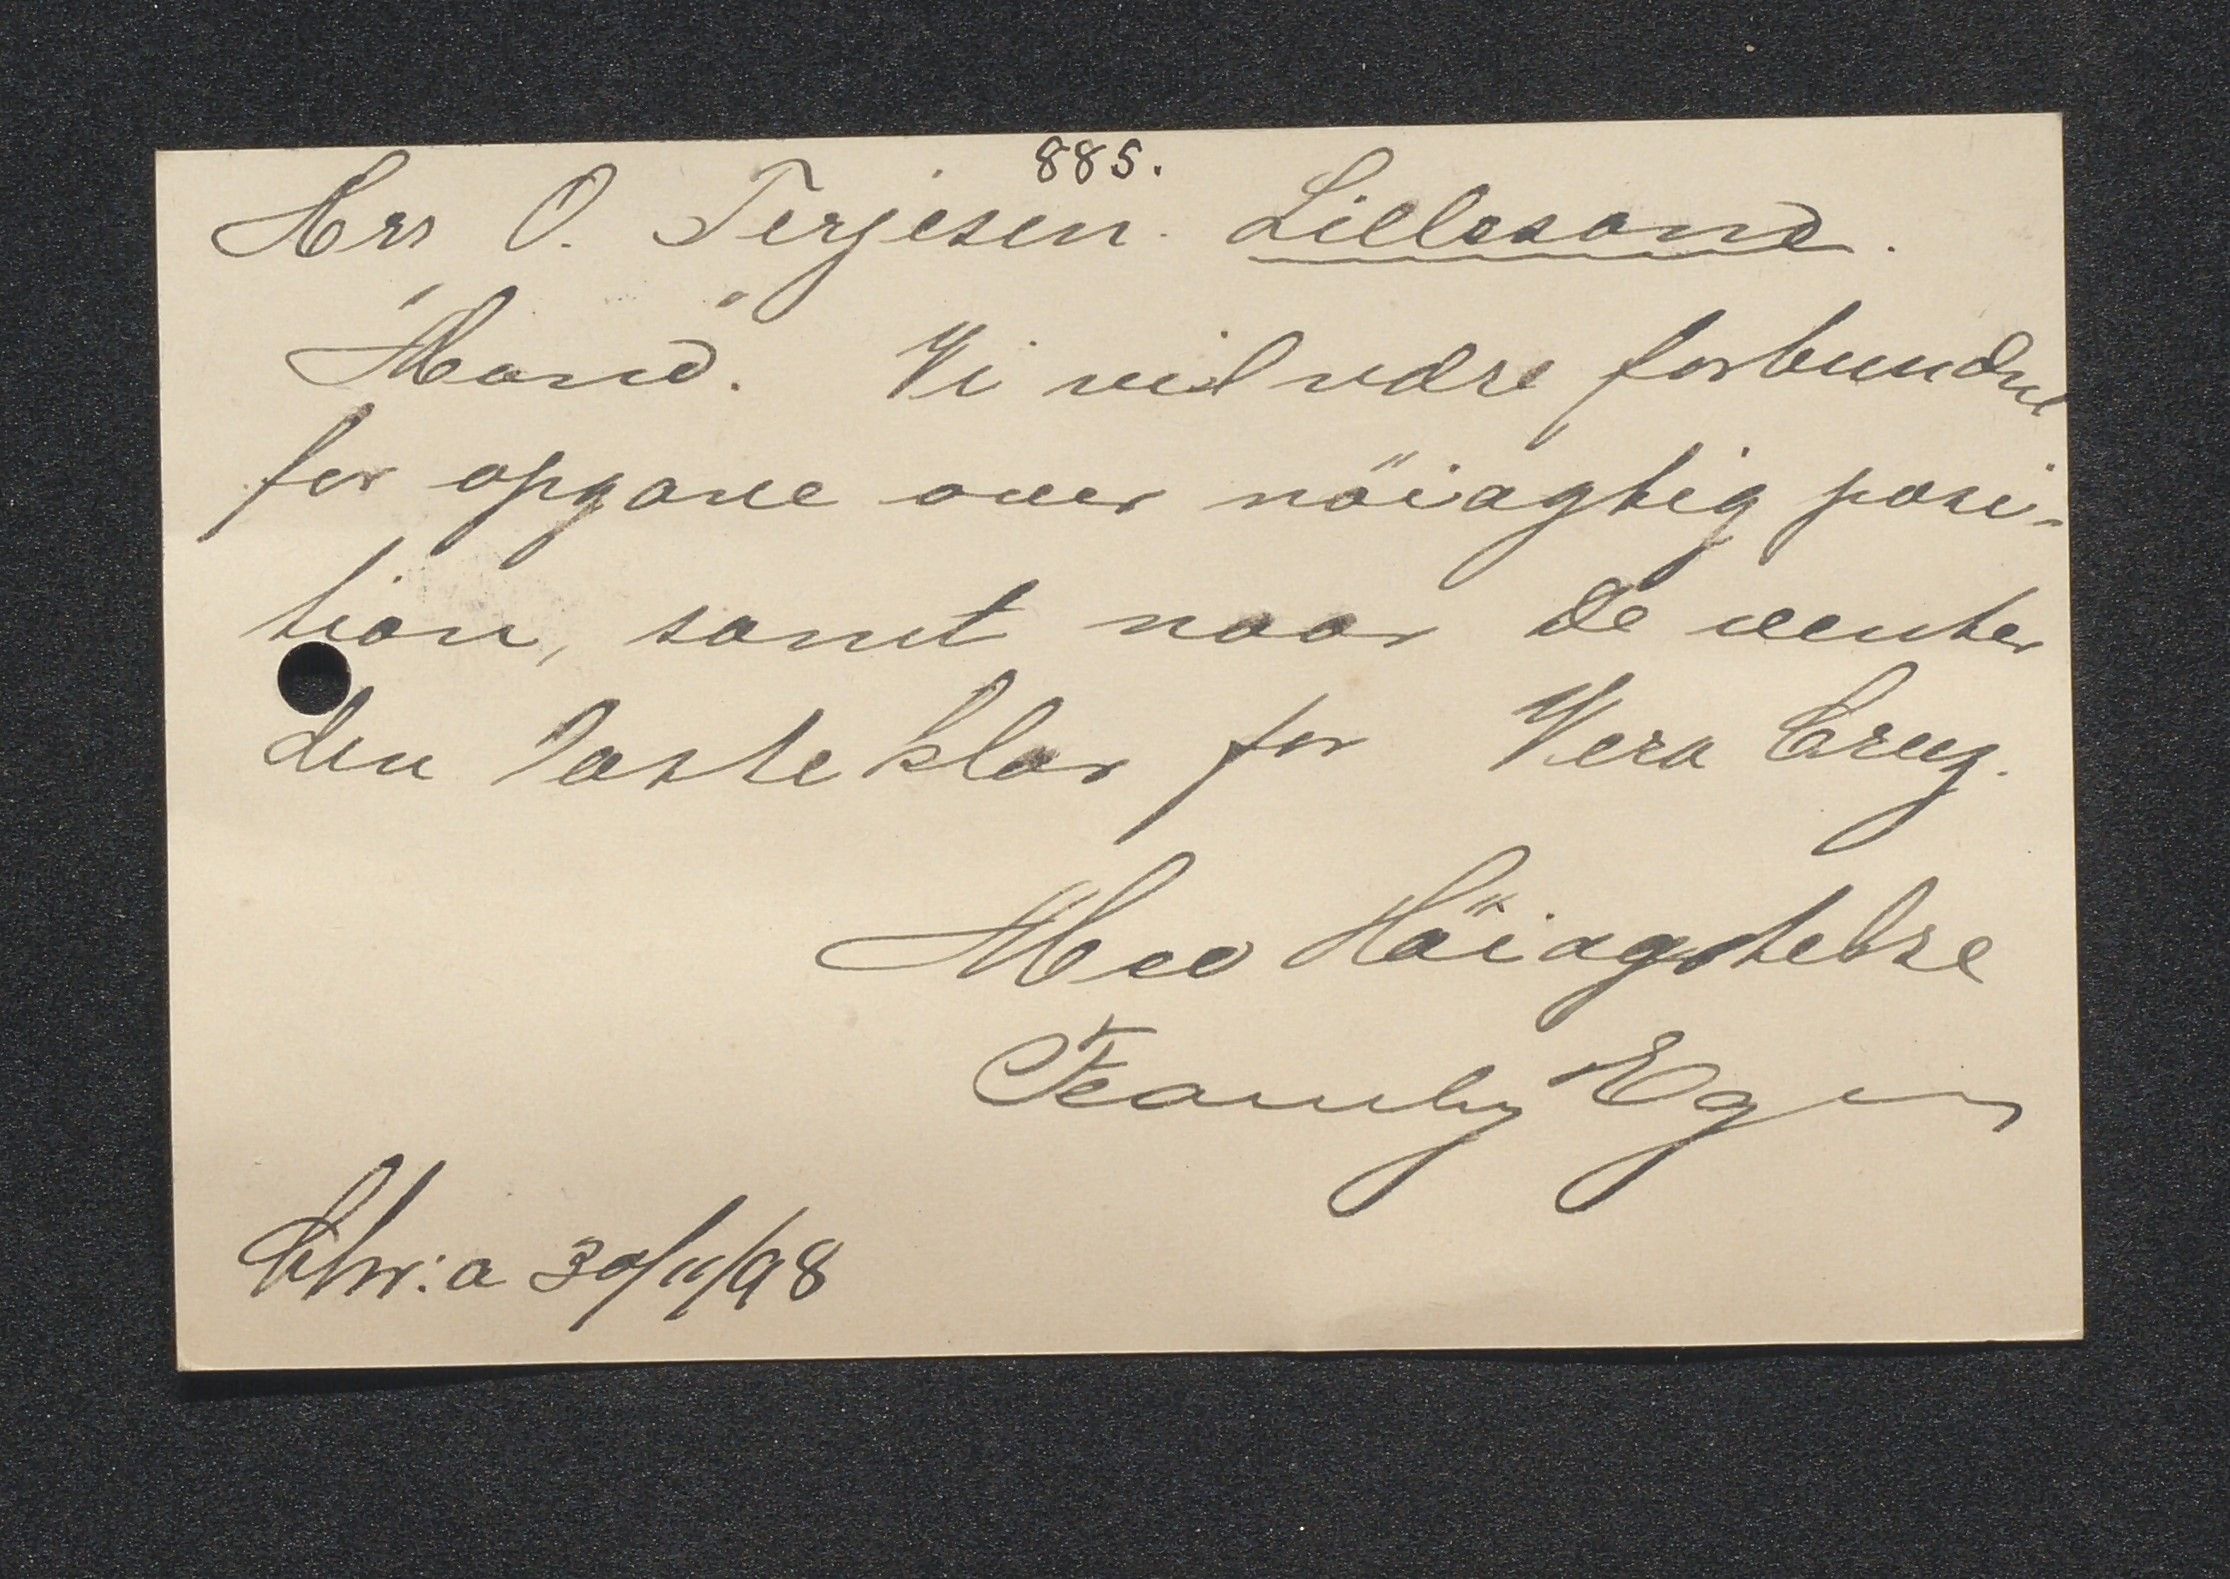 885.
Herr O. Terjesen. Lillesand.
"Mand". Vi vil være forbundne
for opgave over nöiagtig posi-
tion, samt naar De venter
den lasteklar for Vera Cruz.
Med Höiagtelse
Fearnley Eger
Chr:a 30/11/98